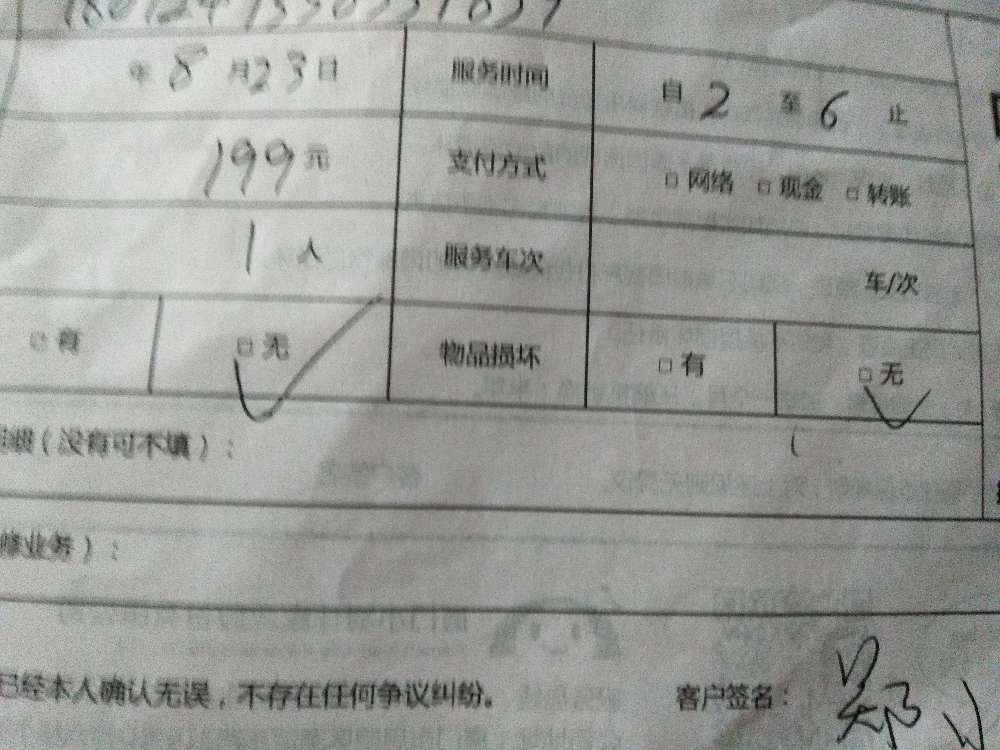 年 8 月 23 日 服务时间 自 2 至 6 止
199 元 支付方式 □ 网络 □ 现金 □ 转账
1 人 服务车次 车/次
□ 有 □ 无 物品损坏 □ 有 □ 无
(没有可不填):
修业务):
已经本人确认无误,不存在任何争议纠纷。 客户签名: 郑